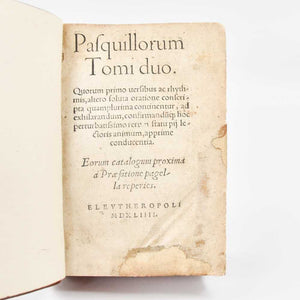 Pasquillorum
Tomi duo.
Quorum primo uersibus ac rhyth-
mis, altero soluta oratione conscri-
pta quamplurima continentur, ad
exhilarandum, confirmandumq; hoc
perturbatissimo rerum statu pij le-
ctoris animum, apprime
conducentia.
Eorum catalogum proxima
à Præfatione pagel-
la reperies.
ELEVTHEROPOLI
MDXLIIII.